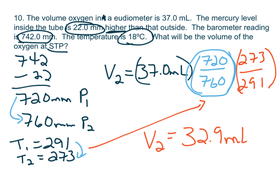 10. The volume oxygen in a eudiometer is 37.0 mL. The mercury level
inside the tube is 22.0 mm higher than that outside. The barometer reading
is 742.0 mm. The temperature is 18°C. What will be the volume of the
oxygen at STP?
742
- 22
720mm P1
760mm P2
T1 = 291
T2 = 273
V2 = (37.0mL) (720/760) (273/291)
V2 = 32.9mL